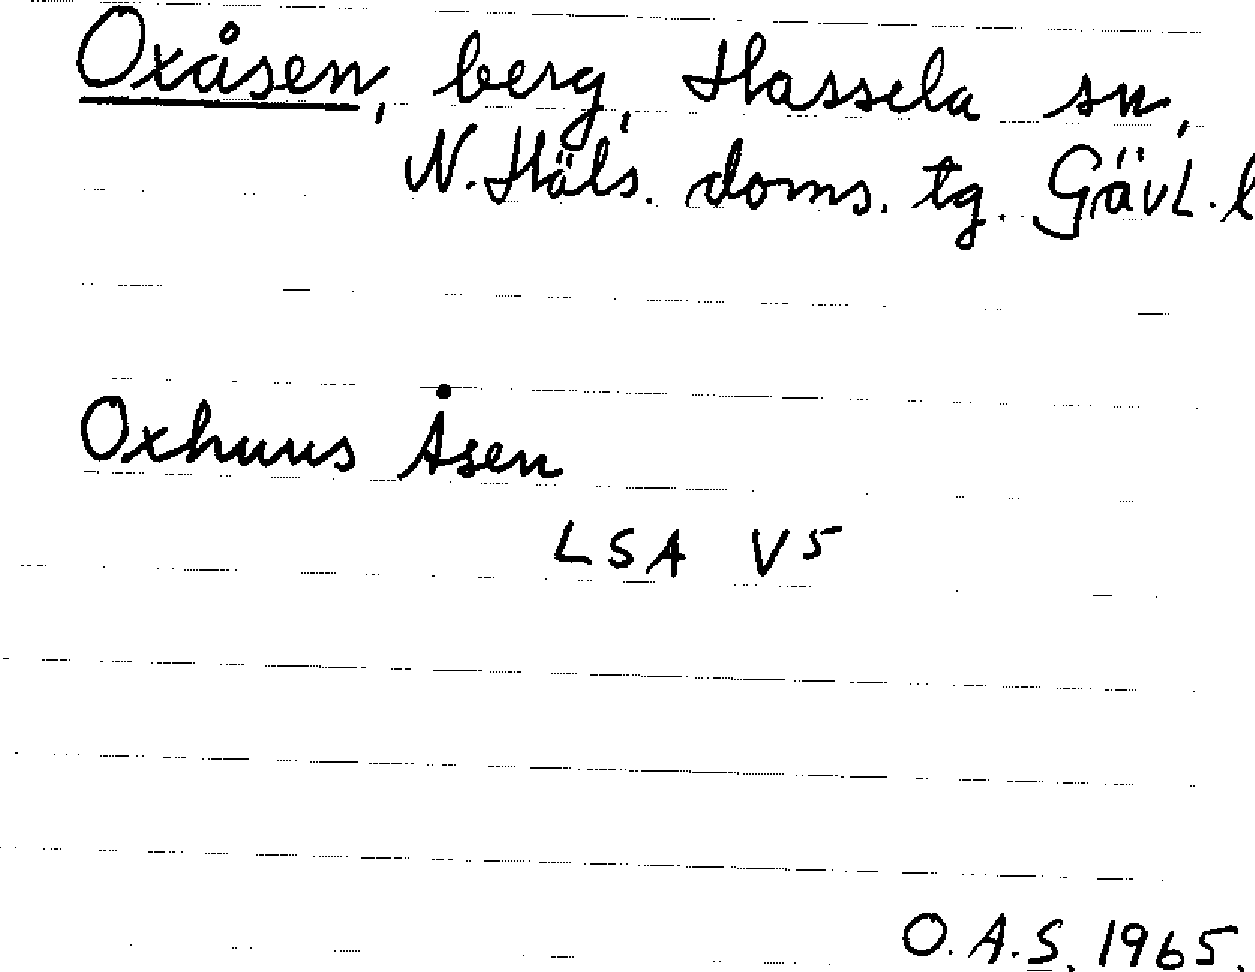 Oxåsen, berg, Hassela sn,
N. Häls. doms. tg. Gävl. l
Oxhuus Åsen
LSA V5
O.A.S. 1965.